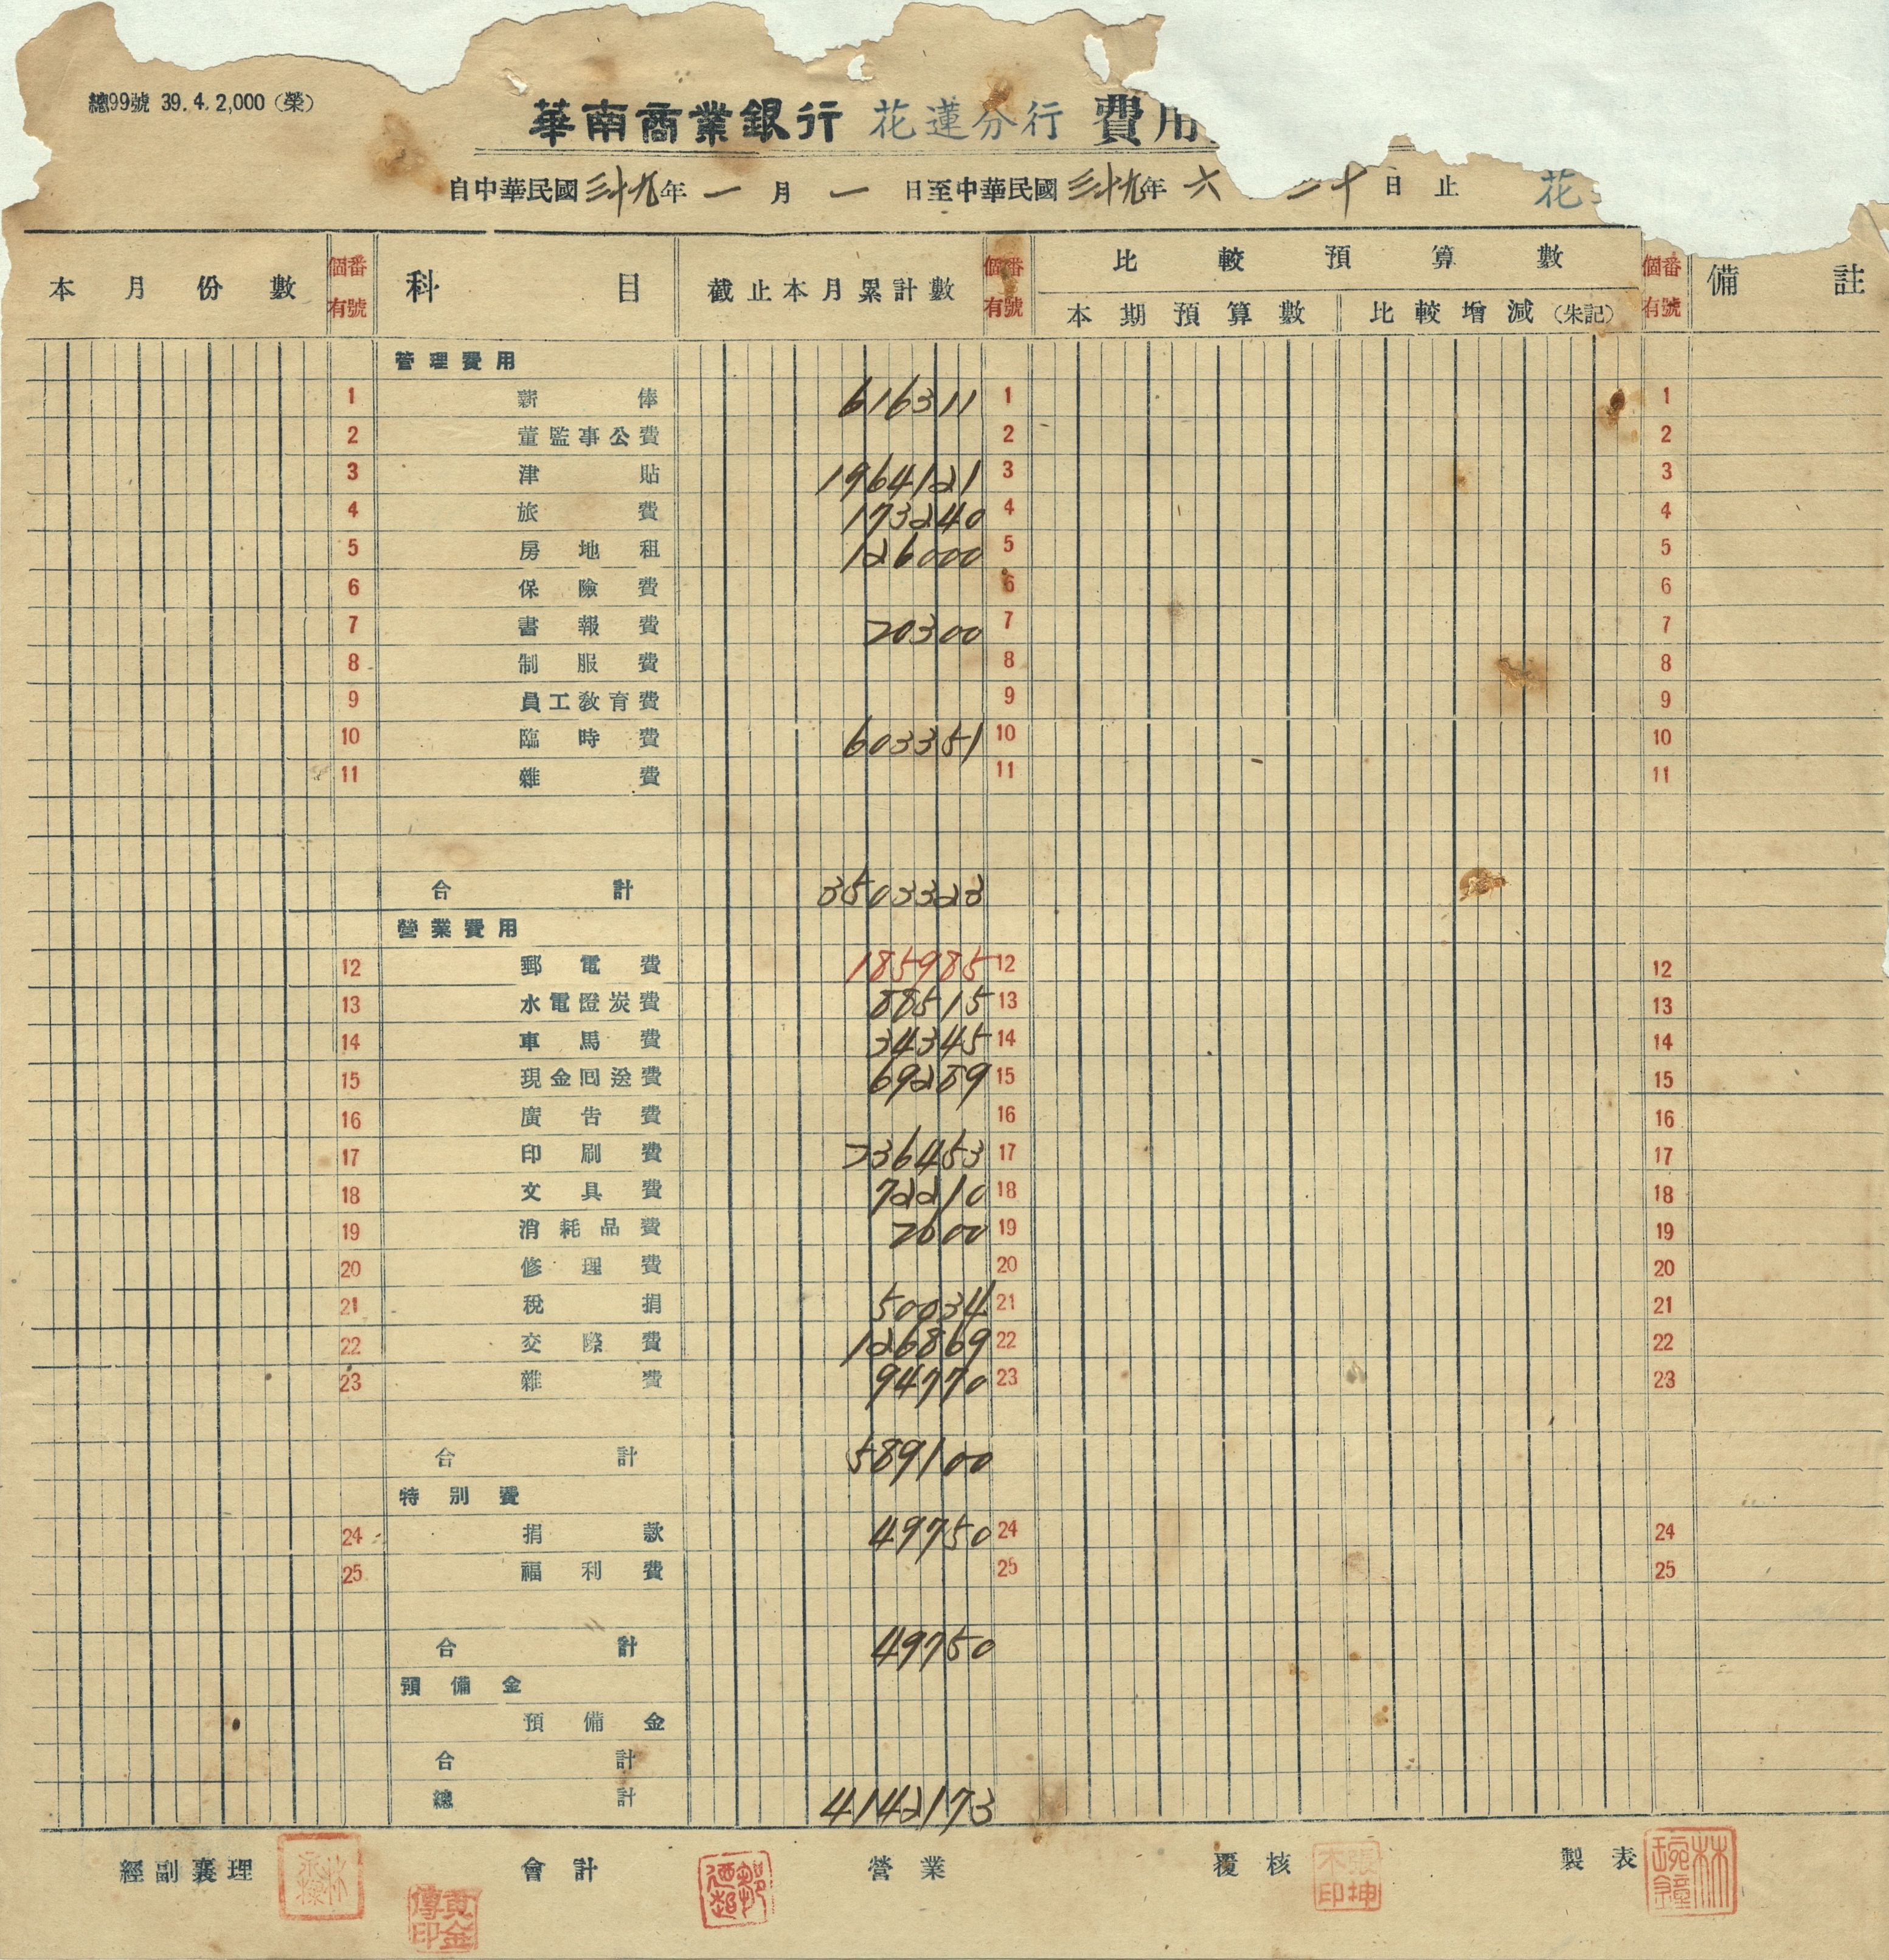 總99號 39.4.2,000（榮）
華南商業銀行 花蓮分行 費用
自中華民國三十九年一月一日至中華民國三十九年六 二十日止 花
本月份數 個有番號 科目 截止本月累計數 個有番號 比較預算數 個有番號 備註
本期預算數 比較增減（朱記）
管理費用
1 薪俸 616311 1 1
2 董監事公費 2 2
3 津貼 1964121 3 3
4 旅費 173240 4 4
5 房地租 126000 5 5
6 保險費 6 6
7 書報費 20300 7 7
8 制服費 8 8
9 員工教育費 9 9
10 臨時費 603351 10 10
11 雜費 11 11
合計 3503323
營業費用
12 郵電費 185985 12 12
13 水電燈炭費 88515 13 13
14 車馬費 34345 14 14
15 現金回送費 69289 15 15
16 廣告費 16 16
17 印刷費 236453 17 17
18 文具費 72210 18 18
19 消耗品費 2600 19 19
20 修理費 20 20
21 稅捐 50034 21 21
22 交際費 126869 22 22
23 雜費 94770 23 23
合計 589100
特別費
24 捐款 49750 24 24
25 福利費 25 25
合計 49750
預備金
預備金
合計
總計 4142173
經副襄理 會計 營業 覆核 張坤木印 製表 林琬鐘
黃金傳印